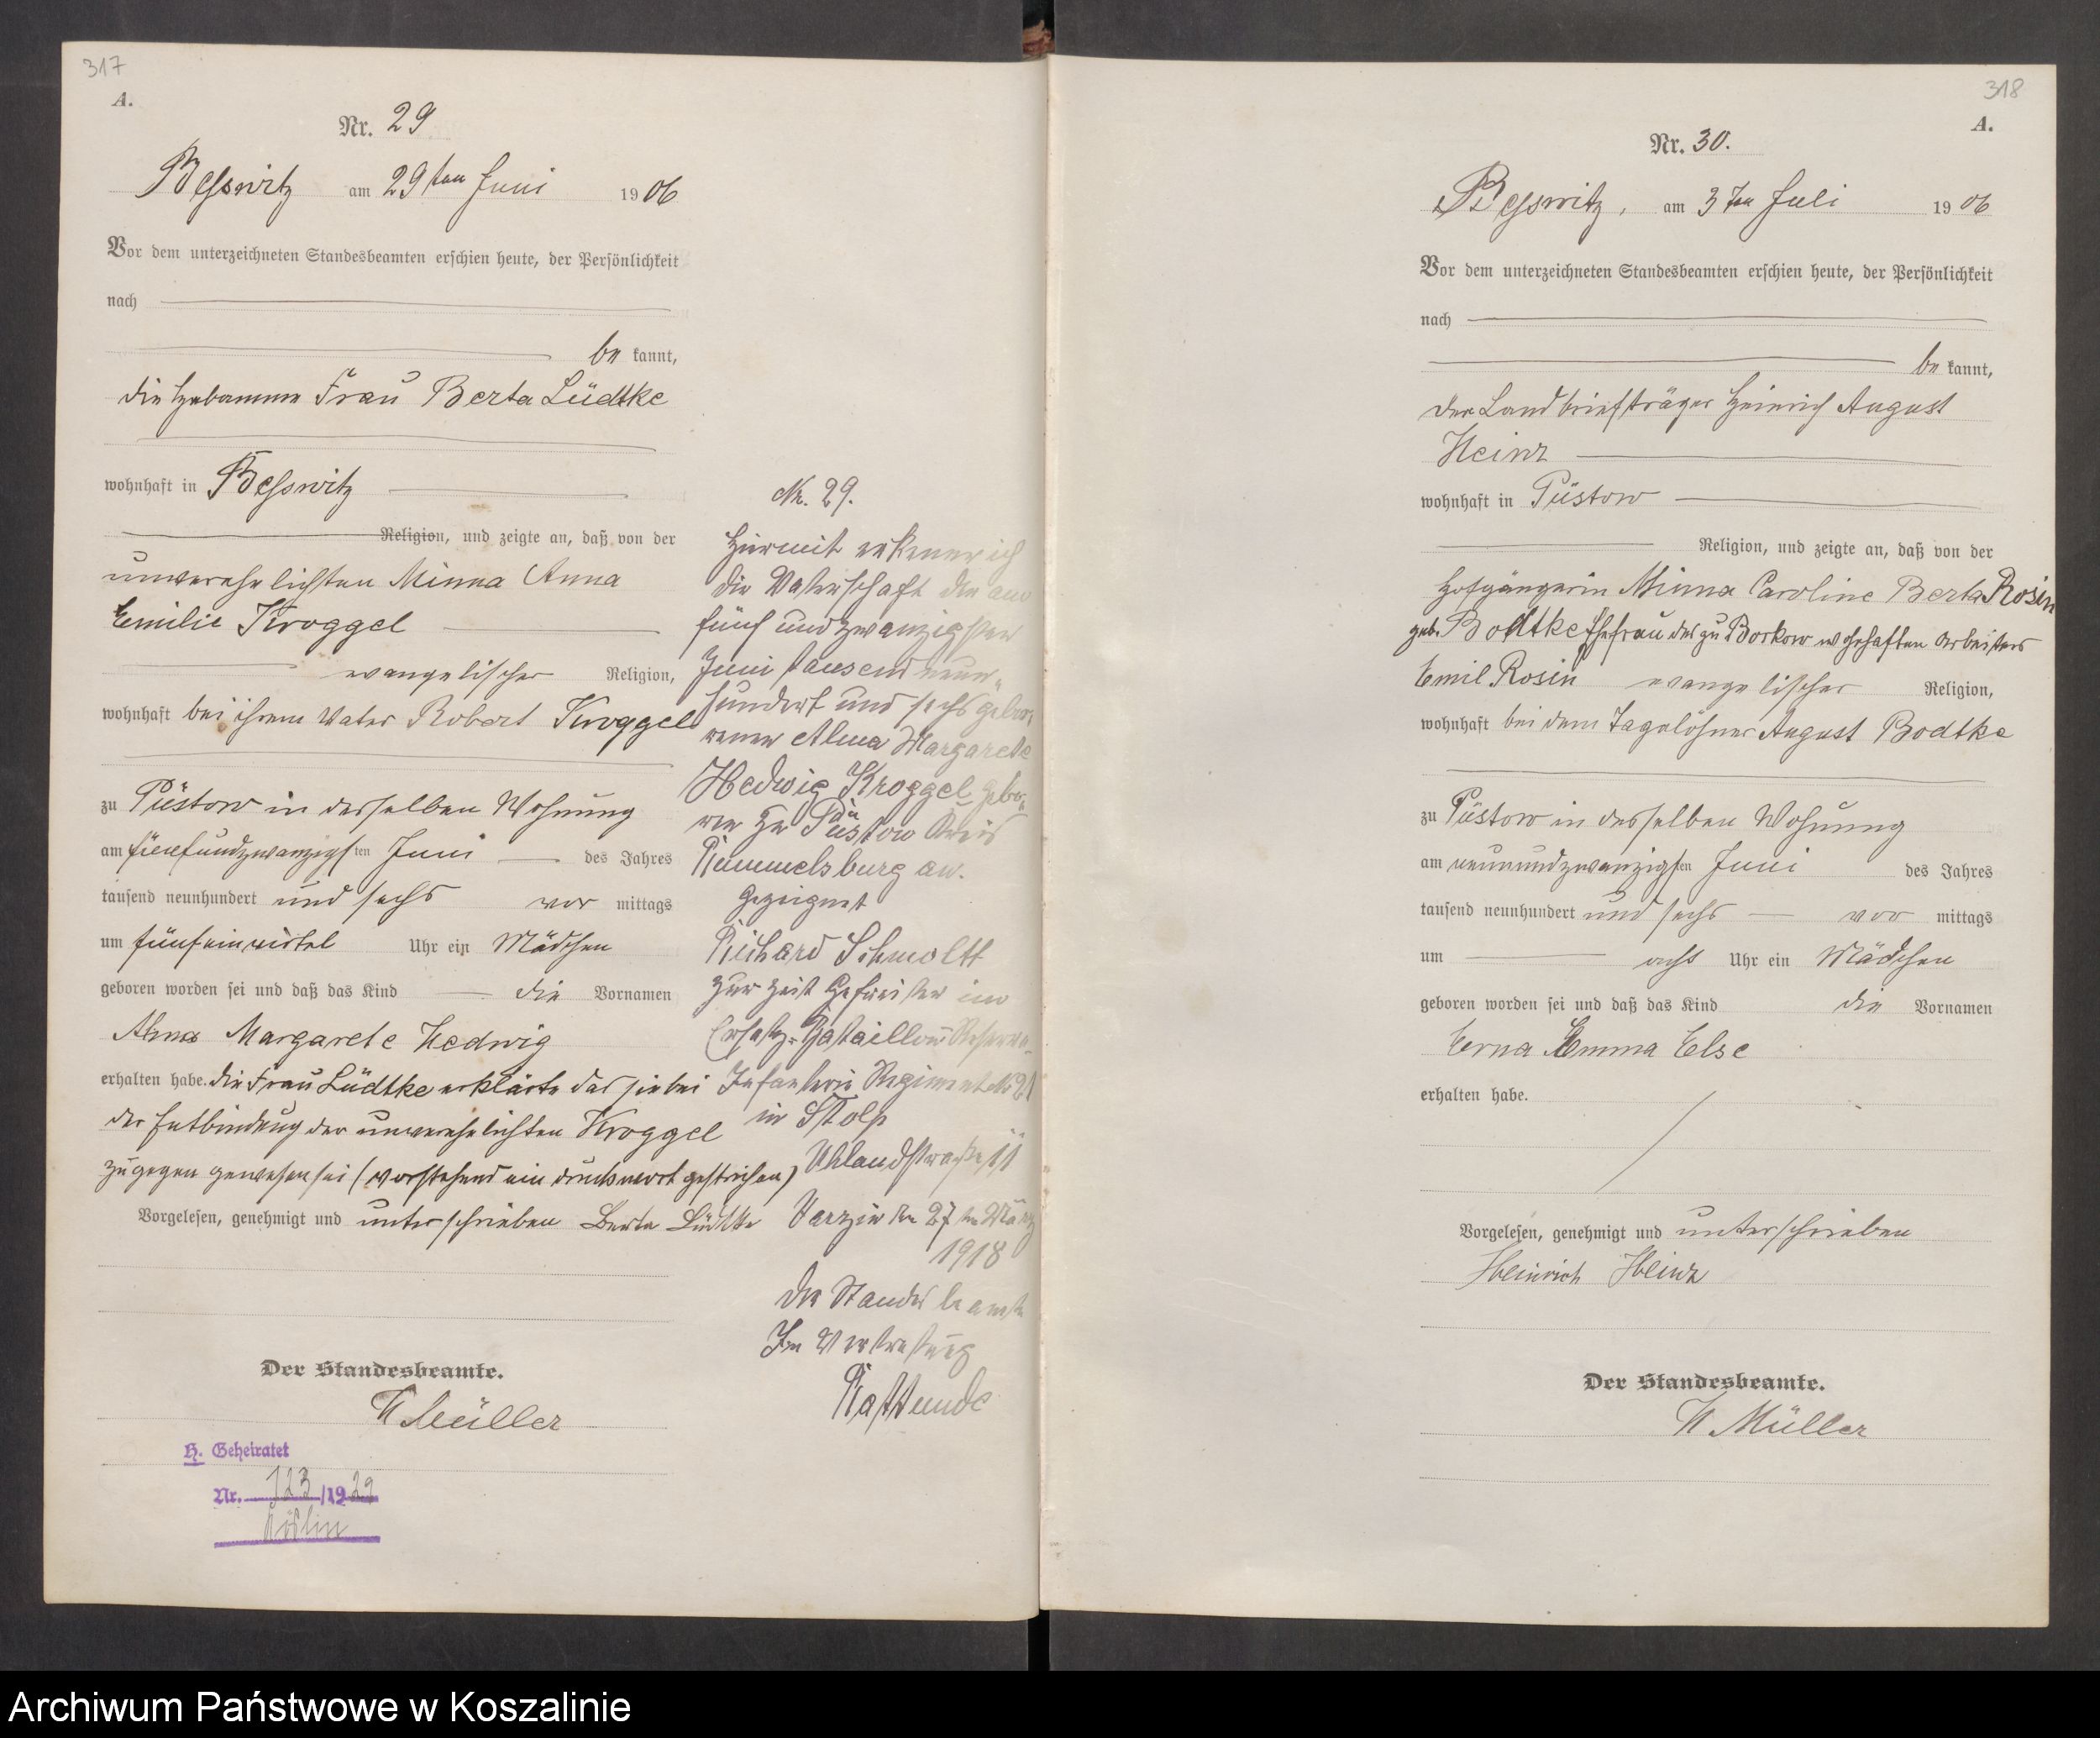 317
A.
Nr. 29
Besswitz am 29ten Juni 1906
Vor dem unterzeichneten Standesbeamten erschien heute, der Persönlichkeit
nach
be kannt,
die Hebamme Frau Berta Lüdtke
wohnhaft in Besswitz
Religion, und zeigte an, daß von der
unverehelichten Minna Anna
Emilie Kroggel
evangelischer Religion,
wohnhaft bei ihrem Vater Robert Kroggel
zu Püstow in derselben Wohnung
am fünfundzwanzigsten Juni des Jahres
tausend neunhundert und sechs vor mittags
um fünfeinviertel Uhr ein Mädchen
geboren worden sei und daß das Kind die Vornamen
Alma Margarete Hedwig
erhalten habe. die Frau Lüdtke erklärte das sie bei
der Entbindung der unverehelichten Kroggel
zugegen gewesen sei (vorstehend ein druckwort gestrichen)
Vorgelesen, genehmigt und unterschrieben Berta Lüdtke
Der Standesbeamte.
H Müller
H. Geheiratet
Nr. 123/1929
Köslin
Nr. 29.
Hiermit erkenne ich
die Vaterschaft die am
fünf und zwanzigsten
Juni tausend neun-
hundert und sechs gebo-
renen Alma Margarete
Hedwig Kroggel gebo-
ren zu Püstow Kreis
Rummelsburg an.
Gezeignet
Richard Schmoltt
zur zeit Gefreiter im
Ersatz-Bataillon Reserve-
Infanterie Regiment No 21
in Stolp
Uhlandstraße 11
Varzin den 27ten März
1918
Der Standesbeamte
In Vertretung
Rattunde
318
A.
Nr. 30.
Besswitz, am 3ten Juli 1906
Vor dem unterzeichneten Standesbeamten erschien heute, der Persönlichkeit
nach
be kannt,
der Landbriefträger Heinrich August
Heinz
wohnhaft in Püstow
Religion, und zeigte an, daß von der
Hofgängerin Minna Caroline Berta Rosin
geb. Bodtke Ehefrau des zu Borkow wohnhaften Arbeiters
Emil Rosin evangelischer Religion,
wohnhaft bei dem Tagelöhner August Bodtke
zu Püstow in derselben Wohnung
am neunundzwanzigsten Juni des Jahres
tausend neunhundert und sechs vor mittags
um acht Uhr ein Mädchen
geboren worden sei und daß das Kind die Vornamen
Erna Emma Else
erhalten habe.
Vorgelesen, genehmigt und unterschrieben
Heinrich Heinz
Der Standesbeamte.
H Müller
Archiwum Państwowe w Koszalinie